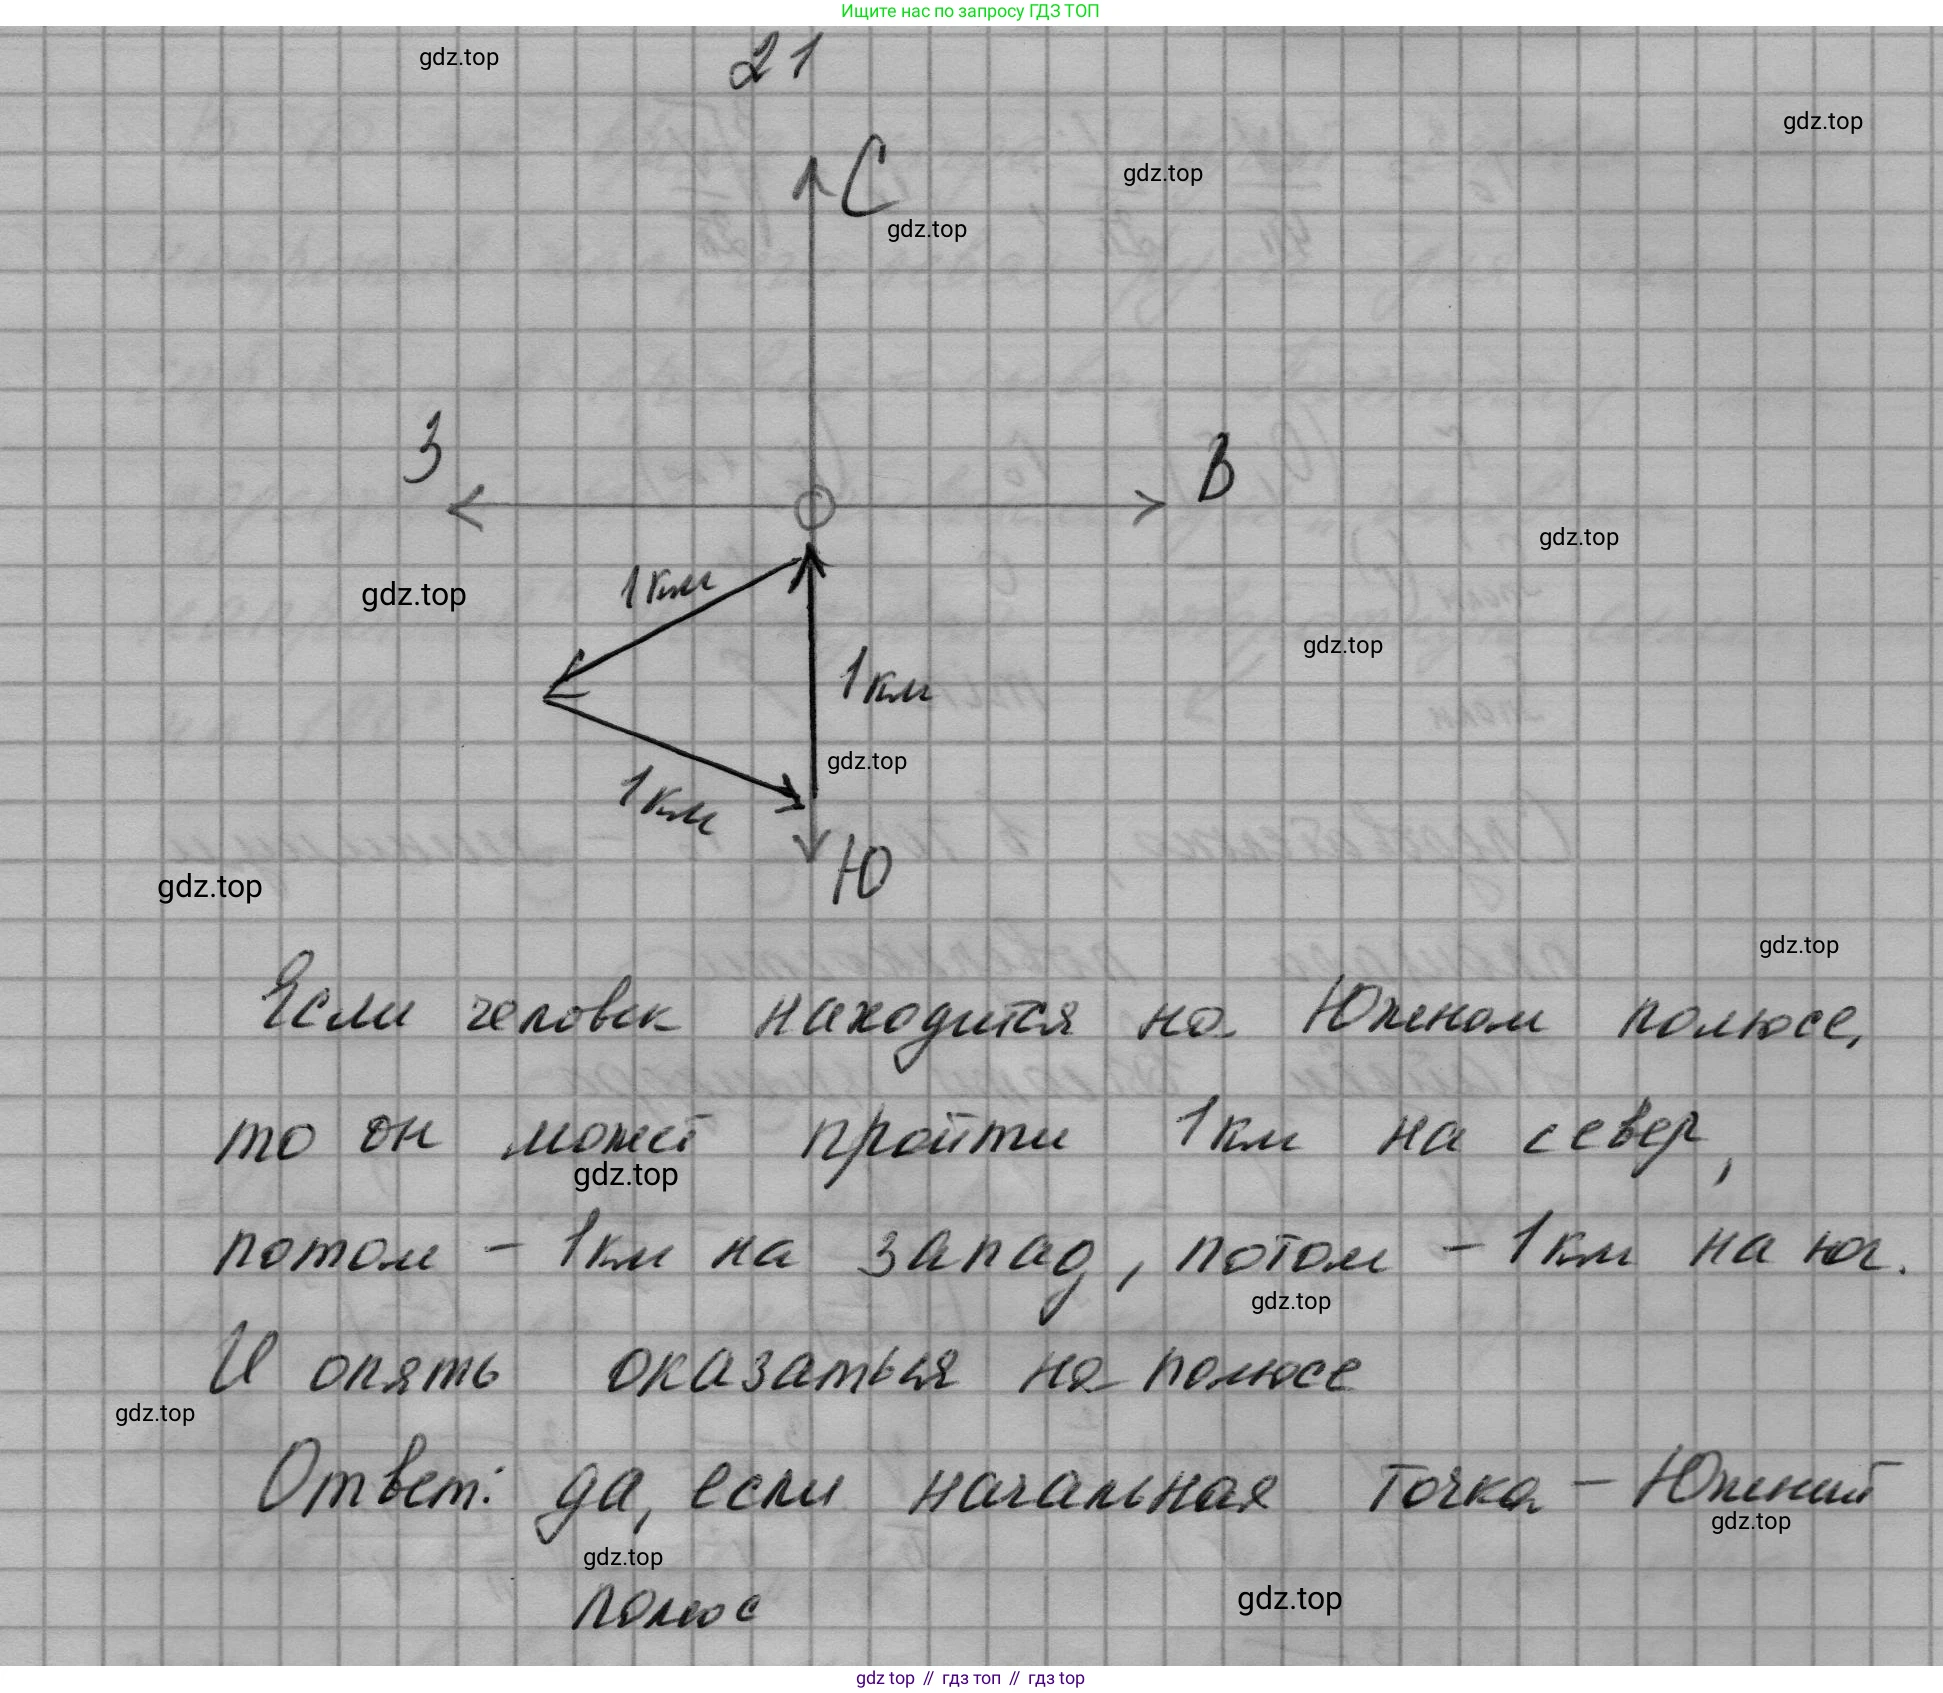 Ищите нас по запросу ГДЗ ТОП
21
gdz.top
gdz.top
С
gdz.top
gdz.top
З
В
gdz.top
1км
gdz.top
gdz.top
1км
gdz.top
1км
Ю
gdz.top
gdz.top
Если человек находится на Южном полюсе,
то он может пройти 1км на север,
gdz.top
потом – 1км на запад, потом – 1км на юг.
gdz.top
И опять оказаться на полюсе
gdz.top
Ответ: да, если начальная точка – Южный
gdz.top
gdz.top
полюс
gdz.top
gdz top // гдз топ // гдз top